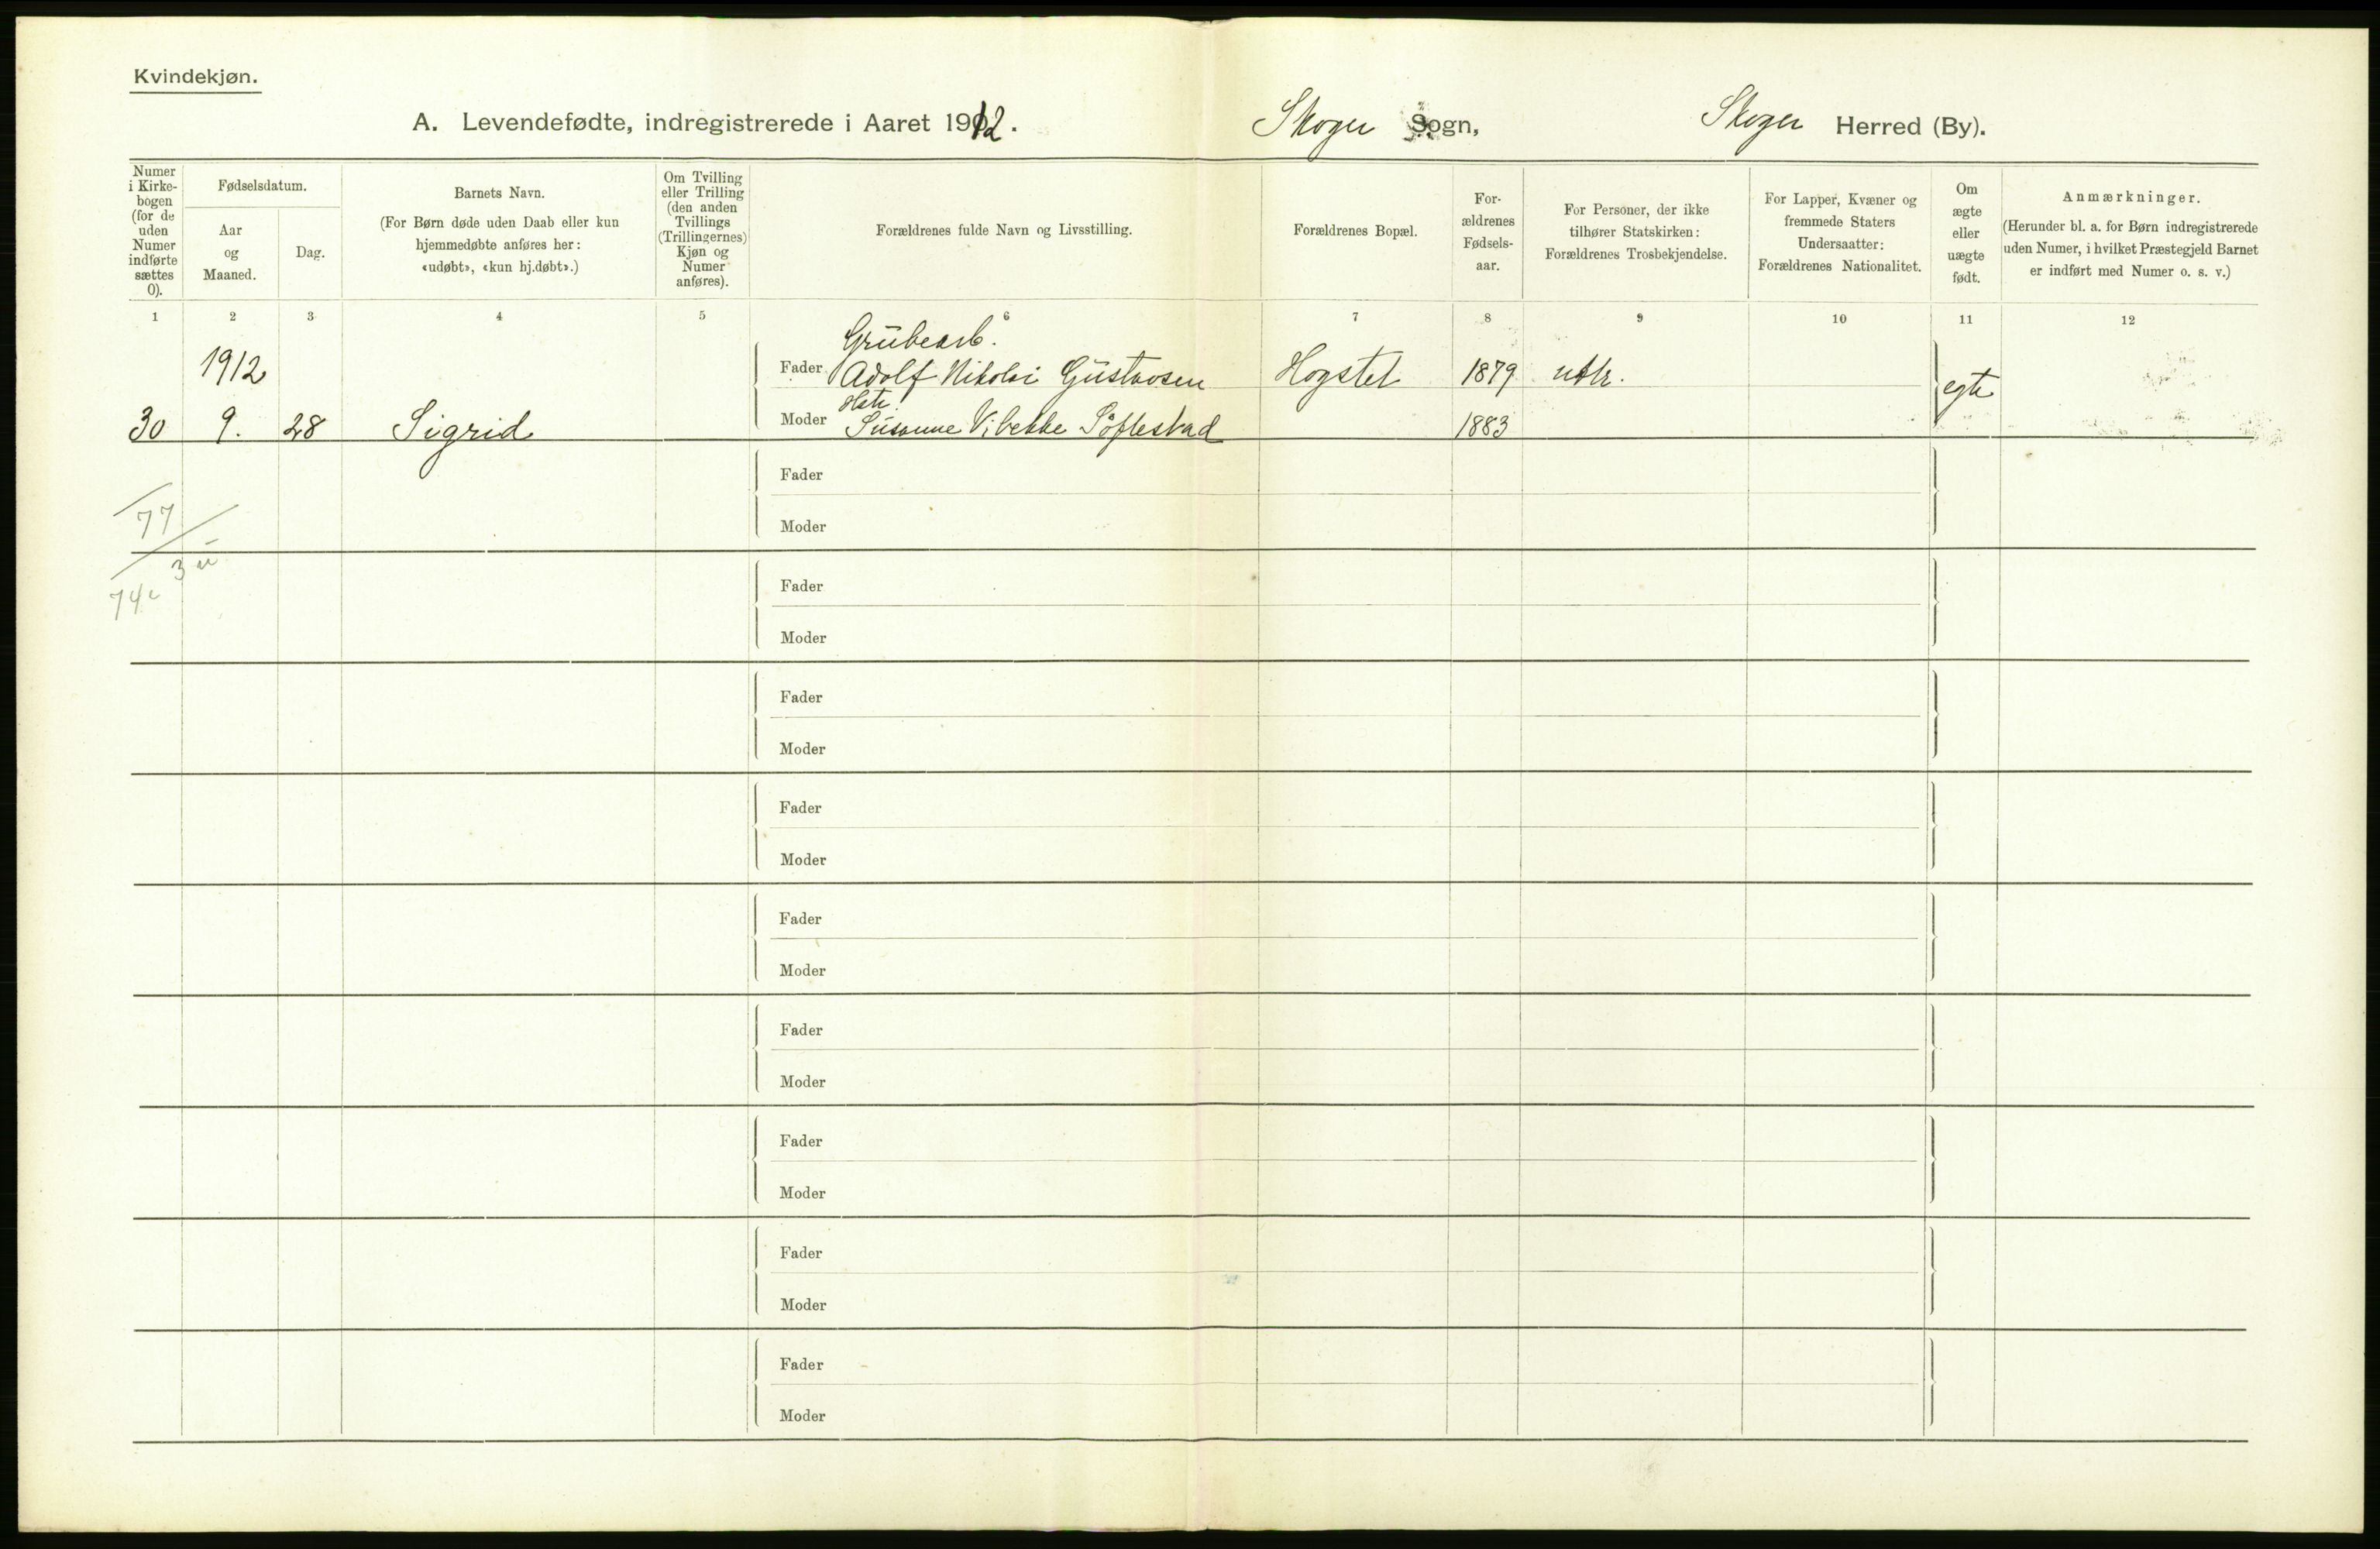 Kvindekjøn.
A. Levendefødte, indregistrerede i Aaret 1912. Skoger Sogn, Skoger Herred (By).
Numer i Kirkebogen (for de uden Numer indførte sættes 0).
Fødselsdatum.
Aar og Maaned.
Dag.
Barnets Navn.
(For Børn døde uden Daab eller kun
hjemmedøbte anføres her:
«udøbt», «kun hj.døbt».)
Om Tvilling
eller Trilling
(den anden
Tvillings
(Trillingernes)
Kjøn og
Numer
anføres).
Forældrenes fulde Navn og Livsstilling.
Forældrenes Bopæl.
For-
ældrenes
Fødsels-
aar.
For Personer, der ikke
tilhører Statskirken:
Forældrenes Trosbekjendelse.
For Lapper, Kvæner og
fremmede Staters
Undersaatter:
Forældrenes Nationalitet.
Om
ægte
eller
uægte
født.
Anmærkninger.
(Herunder bl. a. for Børn indregistrerede
uden Numer, i hvilket Præstegjeld Barnet
er indført med Numer o. s. v.)
1 2 3 4 5 6 7 8 9 10 11 12
Grubearb.
1912 Fader Adolf Nikolai Gustavsen Hogstet 1879
egte
30 9. 28 Sigrid Moder Susanne Vibekke Søftestad 1883
Fader
77
Moder
3
Fader
74
Moder
Fader
Moder
Fader
Moder
Fader
Moder
Fader
Moder
Fader
Moder
Fader
Moder
Fader
Moder